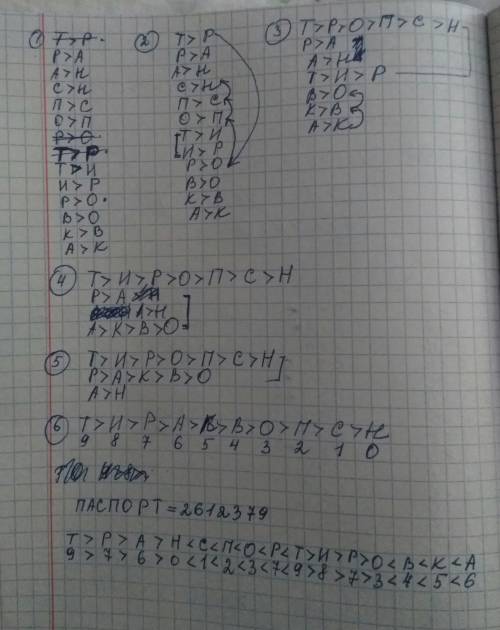 ① Т > Р.
Р > А
А > Н
С > Н
П > С
О > П
Р > О
Т > Р
Т > И
И > Р
Р > О.
В > О
К > В
А > К
② Т > Р
Р > А
А > Н
С > Н
П > С
О > П
Т > И
И > Р
Р > О
В > О
К > В
А > К
③ Т > Р > О > П > С > Н
Р > А
А > Н
Т > И > Р
В > О
К > В
А > К
④ Т > И > Р > О > П > С > Н
Р > А
А > Н
А > К > В > О
⑤ Т > И > Р > О > П > С > Н
Р > А > К > В > О
А > Н
⑥ Т > И > Р > А > К > В > О > П > С > Н
9 8 7 6 5 4 3 2 1 0
ПАСПОРТ = 2612379
Т > Р > А > Н < С < П < О < Р < Т > И > Р > О < В < К < А
9 > 7 > 6 > 0 < 1 < 2 < 3 < 7 < 9 > 8 > 7 > 3 < 4 < 5 < 6